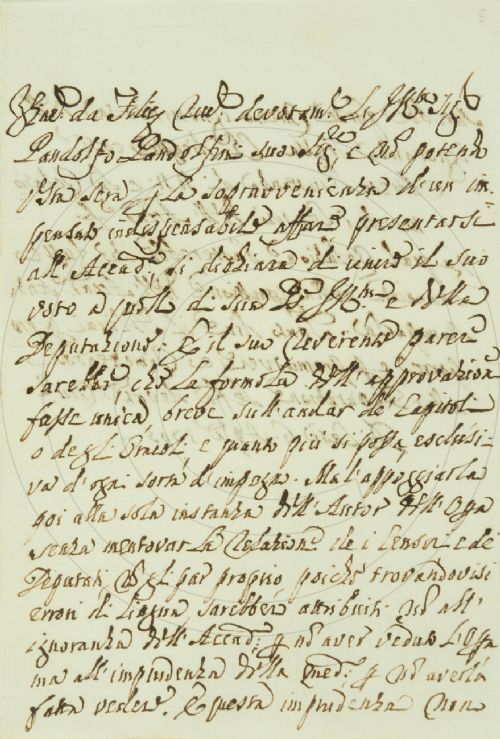 da devotam.e
Pandolfo Pandolfini suo Sig.re e non potendo
sta sera p la sopravvenienza d'un im
pensato indispensabile affare presentarsi
all'Accad.a, si dichiara di unire il suo
voto a quello di sua e della
Deputazione. E il suo reverente parere
sarebbe che la formola dell'approvazione
fosse unica, breve sull'andar de' Capitoli
o degl' e quanto più si possa esclusi
va d'ogni sorta d'impegno. Ma l'appoggiarla
poi alla sola instanza dell'Autor dell'Opa
senza mentovar la relazione de i Censori e de
Deputati, non gli par proprio, poichè trovandovisi
errori di lingua, sarebber attribuiti non all'
ignoranza dell'Accad.a p nõ aver veduto l'Opa
ma all'imprudenza della med.a p nõ averla
fatta vedere. E questa imprudenza non